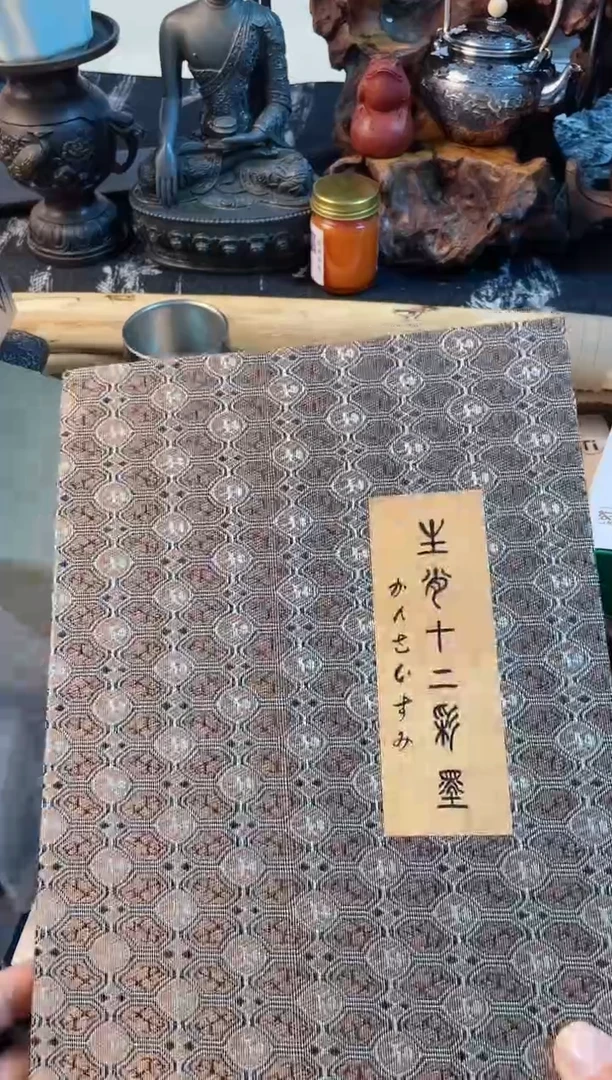 生肖十二彩墨
かんさいすみ